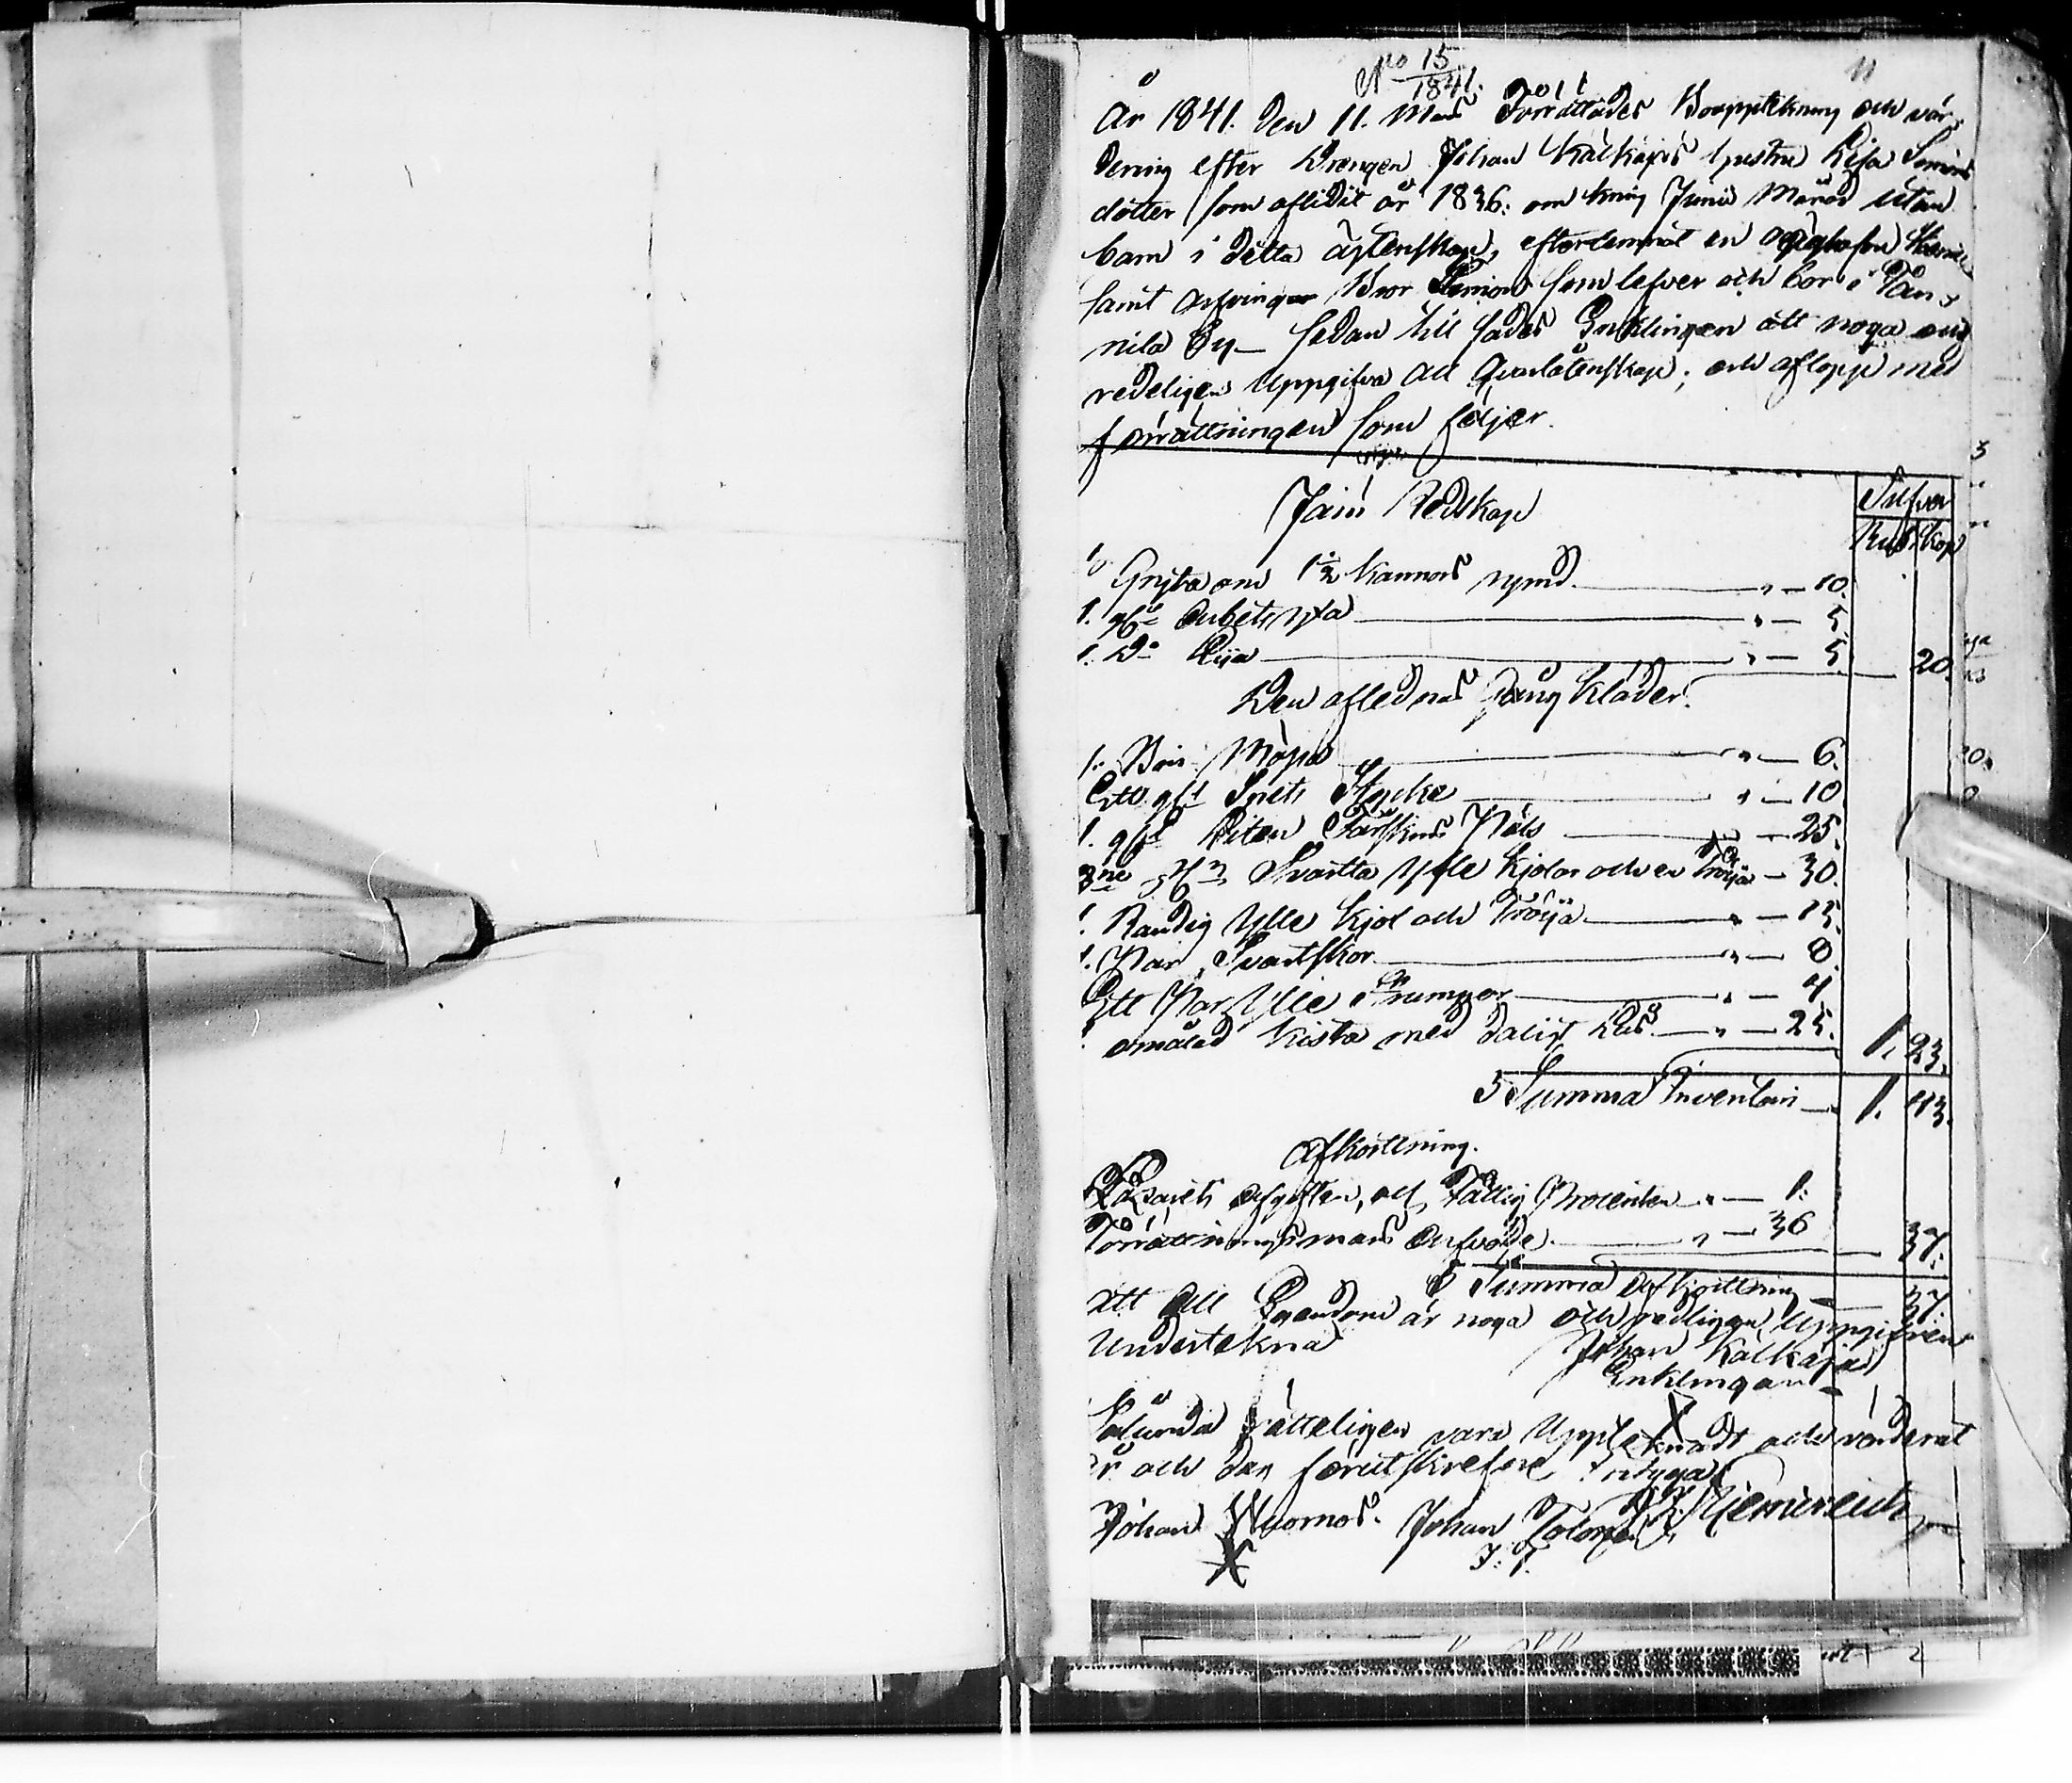 No 15/1841.
11
År 1841. den 11. Mars Förrättades Bouppteckning och vär,
dering efter Drengen Johan Kälkäjäs hustru Lisa Simons
dotter som aflidit år 1836. om kring Junii Månad utan
barn i detta äktenskap, efterlemnat en
samt arfvingar Bror Simon som lefver och bor i Pän,
nilä By_ sedan till sades Enklingen att noga och
redeligen Uppgifva all qvarlåtenskap; och aflopp med
förrättningen som följer.
Silfver
Rub. Kop
Jern Redskap
1 Gryta om 1½ Kannors rymd " — 10.
1. gl arbets yxa " — 5
1. Do Lija " — 5 20.
Den aflednas Gång Kläder.
1. Mössa " — 6.
Ett gl Stycke " — 10
1. gl liten Fårskins Päls " — 25.
3ne gl Svartta Ylle kjolar och en Tröija — 30.
1. Randig Ylle kjol och Tröija " — 15.
1. Par Svartskor " — 8
Ett Par Ylle Strumpor " — 4
1 omålad Kista med dåligt Lås " — 25. 1. 23.
Summa Inventari 1. 43.
Afkortning.
Lazarets afgiften, och Fattig Procenten " — 1.
Förrättningsmans Arfvode " — 36 37.
Summa Afkortning 37.
att all Egendom är noga och redligen Uppgifven
Undertekna Johan Kälkäjä
Enklingen
X
Sålunda rätteligen vara Upptecknadt och värderat
år och dag förutskrefne Intyga
Johan Johan Tolonen
X I. T.